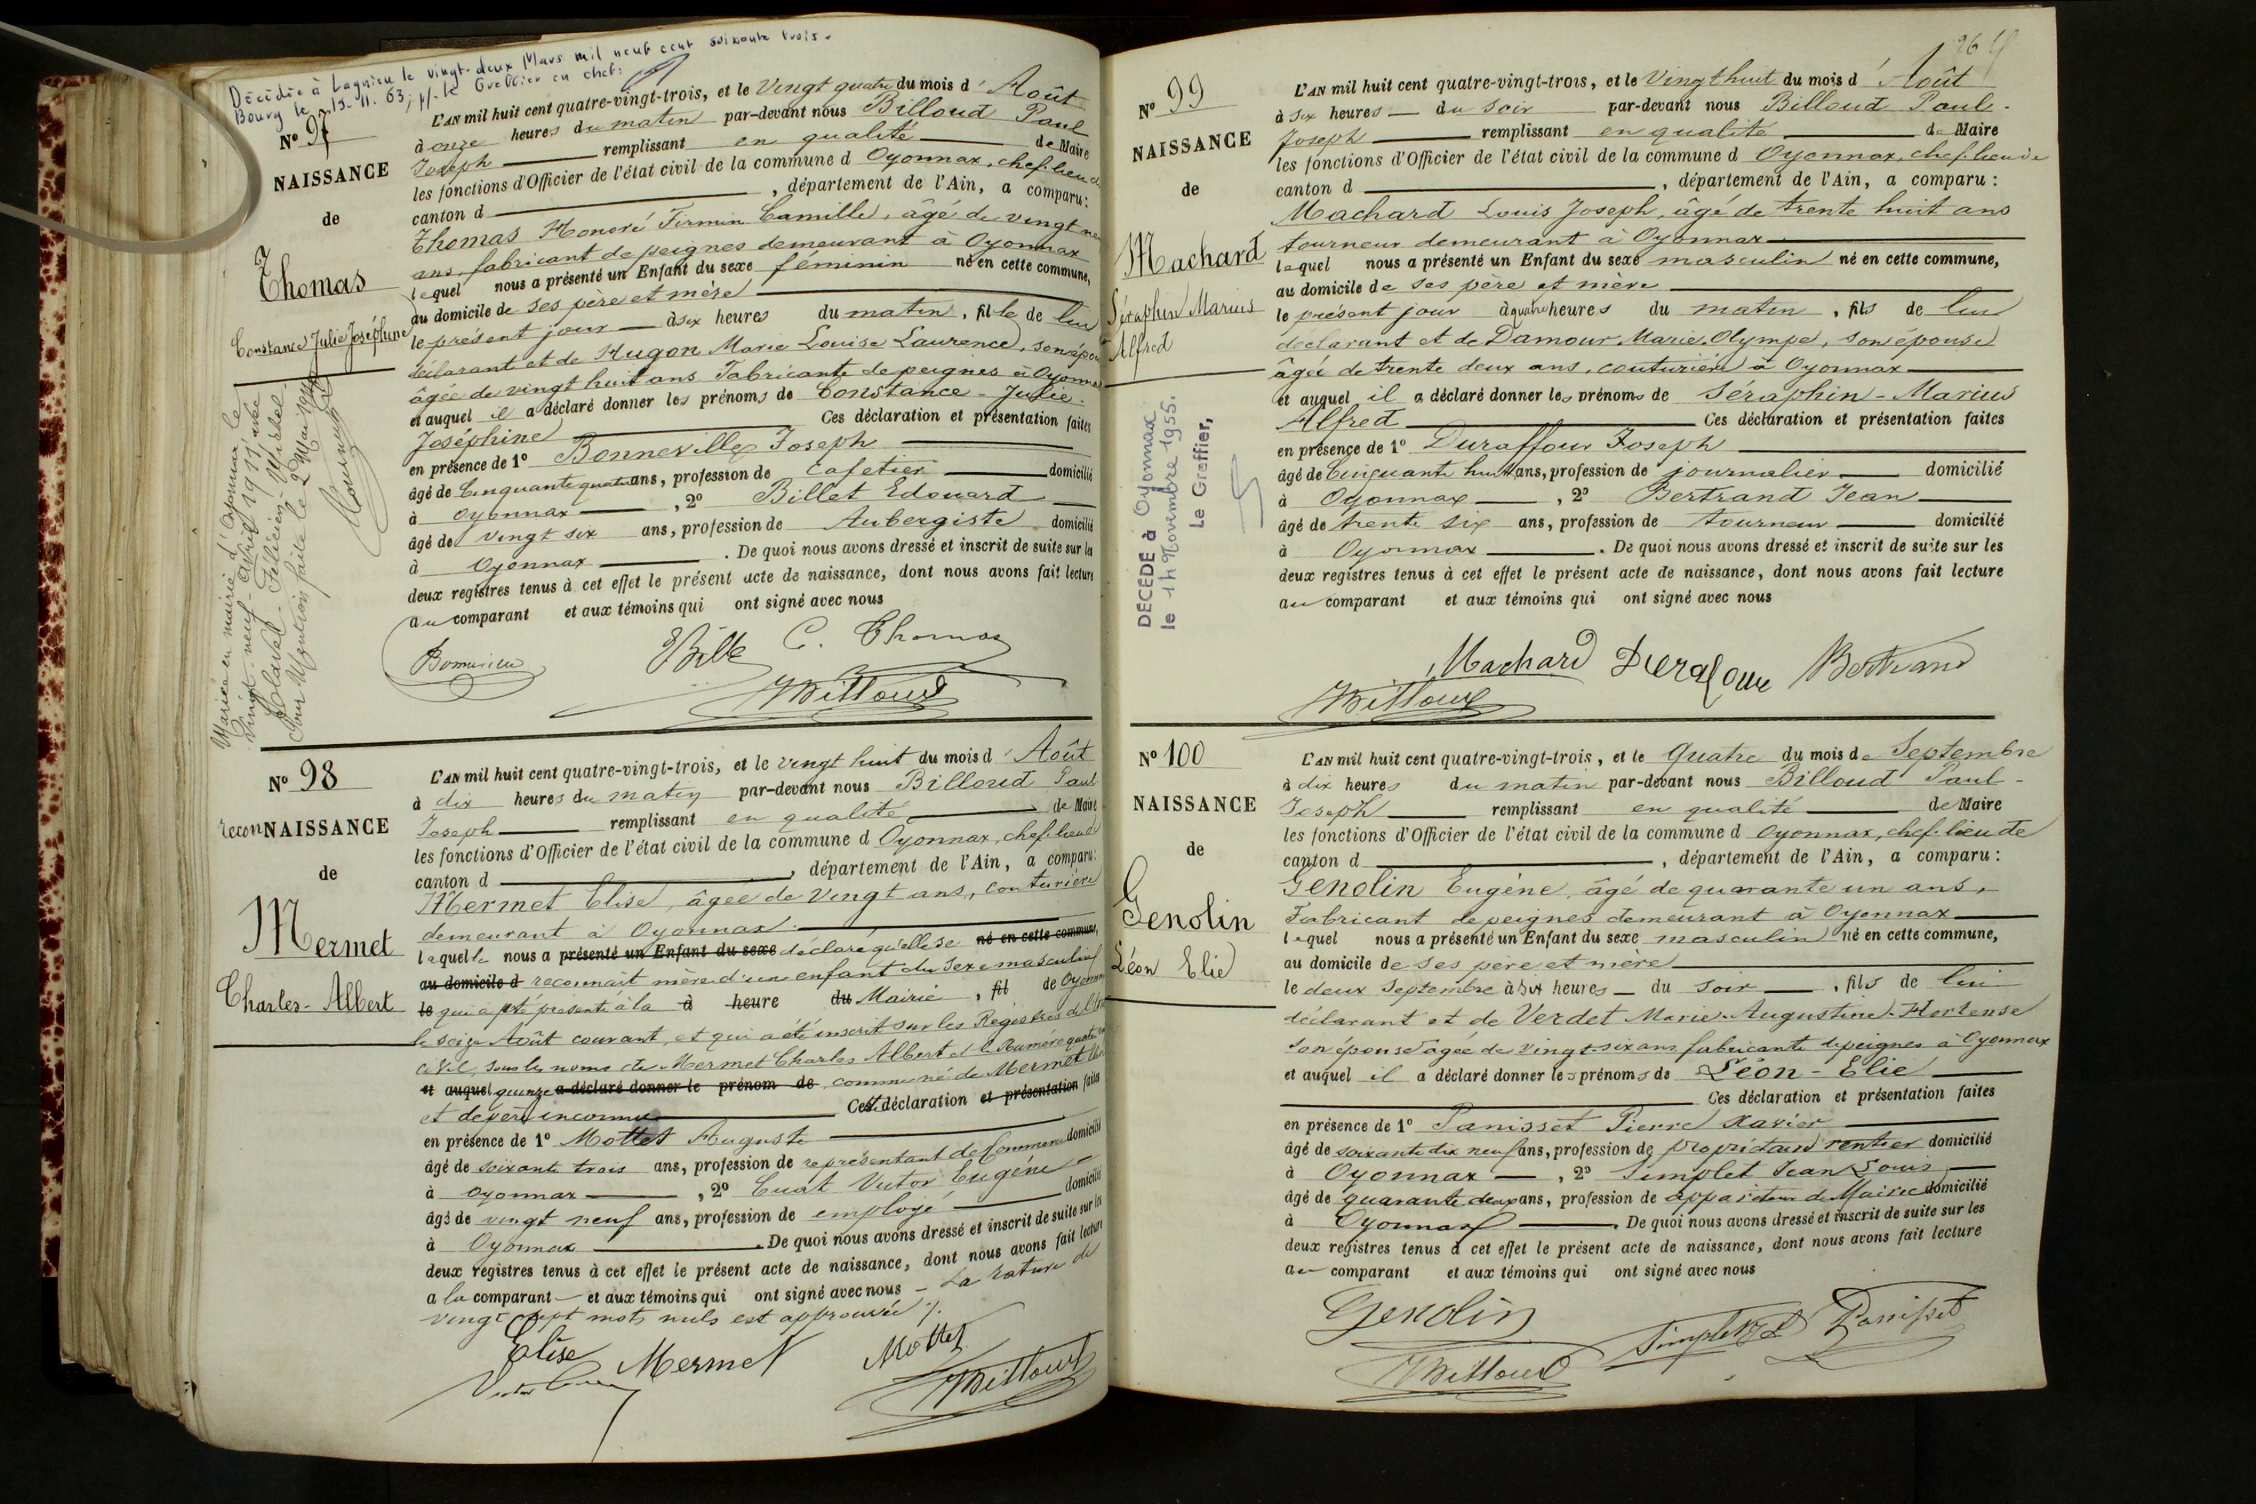 Décédée à Lagnieu le vingt-deux Mars mil neuf cent soixante trois.
Bourg le 15.11.63, p/ le Greffier en chef:
N° 97
NAISSANCE
de
Thomas
Constance Julie Joséphine
Mariée en mairie d'Oyonnax le
vingt-neuf avril 1911 avec
Clavel - Félicien - Michel -
Pour Mention faite le 2 Mai 1911
L'AN mil huit cent quatre-vingt-trois, et le Vingt quatre du mois d'Août
à onze heures du matin par-devant nous Billoud Paul
Joseph remplissant en qualité de Maire
les fonctions d'Officier de l'état civil de la commune d Oyonnax, chef-lieu de
canton d , département de l'Ain, a comparu:
Thomas Honoré Firmin Camille, âgé de vingt neuf
ans, fabricant de peignes demeurant à Oyonnax
lequel nous a présenté un Enfant du sexe féminin né en cette commune,
au domicile de ses père et mère
le présent jour à six heures du matin, fille de lui
déclarant et de Hugon Marie Louise Laurence, son épouse
âgée de vingt huit ans Fabricante de peignes à Oyonnax
et auquel il a déclaré donner les prénoms de Constance - Julie -
Joséphine Ces déclaration et présentation faites
en présence de 1° Bonneville Joseph
âgé de Cinquante quatre ans, profession de cafetier domicilié
à Oyonnax , 2° Billet Edouard
âgé de vingt six ans, profession de Aubergiste domicilié
à Oyonnax . De quoi nous avons dressé et inscrit de suite sur les
deux registres tenus à cet effet le présent acte de naissance, dont nous avons fait lecture
au comparant et aux témoins qui ont signé avec nous
C. Thomas
Billoud
N° 98
reconNAISSANCE
de
Mermet
Charles-Albert
L'AN mil huit cent quatre-vingt-trois, et le vingt huit du mois d'Août
à dix heures du matin par-devant nous Billoud Paul
Joseph remplissant en qualité de Maire
les fonctions d'Officier de l'état civil de la commune d Oyonnax, chef-lieu de
canton d , département de l'Ain, a comparu:
Mermet Elise, âgée de vingt ans, couturière
demeurant à Oyonnax
laquelle nous a présenté un Enfant du sexe déclaré qu'elle se né en cette commune,
au domicile d reconnait mère d'un enfant du sexe masculin
le qui a été présenté à la à heure du Mairie, fil de Oyonnax
le seize Août courant, et qui a été inscrit sur les Registres de l'Etat
civil, sous les noms de Mermet Charles Albert et le Numéro quatre vingt
et auquel quinze a déclaré donner le prénom de comme né de Mermet Elise
et de père inconnu Cette déclaration et présentation faites
en présence de 1° Mottet Auguste
âgé de soixante trois ans, profession de représentant de Commerce domicilié
à Oyonnax , 2° Cuat Victor Eugène
âgé de vingt neuf ans, profession de employé domicilié
à Oyonnax . De quoi nous avons dressé et inscrit de suite sur les
deux registres tenus à cet effet le présent acte de naissance, dont nous avons fait lecture
a la comparant et aux témoins qui ont signé avec nous - La rature de
vingt sept mots nuls est approuvée /.
Elise Mermet Mottet
Victor
Billoud
264
N° 99
NAISSANCE
de
Machard
Séraphin Marius
Alfred
DÉCÉDÉ à Oyonnax
le 14 Novembre 1955.
Le Greffier,
L'AN mil huit cent quatre-vingt-trois, et le Vingt huit du mois d'Août
à six heures du soir par-devant nous Billoud Paul -
Joseph remplissant en qualité de Maire
les fonctions d'Officier de l'état civil de la commune d Oyonnax, chef-lieu de
canton d , département de l'Ain, a comparu:
Machard Louis Joseph, âgé de trente huit ans
tourneur demeurant à Oyonnax
lequel nous a présenté un Enfant du sexe masculin né en cette commune,
au domicile de ses père et mère
le présent jour à quatre heures du matin, fils de lui
déclarant et de Damour Marie Olympe, son épouse
âgée de trente deux ans, couturière à Oyonnax
et auquel il a déclaré donner les prénoms de Séraphin - Marius
Alfred Ces déclaration et présentation faites
en présence de 1° Duraffour Joseph
âgé de Cinquante huit ans, profession de journalier domicilié
à Oyonnax , 2° Bertrand Jean
âgé de trente six ans, profession de tourneur domicilié
à Oyonnax . De quoi nous avons dressé et inscrit de suite sur les
deux registres tenus à cet effet le présent acte de naissance, dont nous avons fait lecture
au comparant et aux témoins qui ont signé avec nous
Machard Duraffour Bertrand
Billoud
N° 100
NAISSANCE
de
Genolin
Léon Elie
L'AN mil huit cent quatre-vingt-trois, et le Quatre du mois de Septembre
à dix heures du matin par-devant nous Billoud Paul -
Joseph remplissant en qualité de Maire
les fonctions d'Officier de l'état civil de la commune d Oyonnax, chef-lieu de
canton d , département de l'Ain, a comparu:
Genolin Eugène, âgé de quarante un ans,
Fabricant de peignes demeurant à Oyonnax
lequel nous a présenté un Enfant du sexe masculin né en cette commune,
au domicile de ses père et mère
le deux Septembre à six heures du soir, fils de lui
déclarant et de Verdet Marie-Augustine-Hortense
son épouse âgée de vingt-six ans fabricante de peignes à Oyonnax
et auquel il a déclaré donner les prénoms de Léon - Elie
Ces déclaration et présentation faites
en présence de 1° Panisset Pierre Xavier
âgé de soixante dix neuf ans, profession de propriétaire rentier domicilié
à Oyonnax , 2° Simplet Jean Louis
âgé de quarante deux ans, profession de appariteur de Mairie domicilié
à Oyonnax . De quoi nous avons dressé et inscrit de suite sur les
deux registres tenus à cet effet le présent acte de naissance, dont nous avons fait lecture
au comparant et aux témoins qui ont signé avec nous
Genolin Simplet Panisset
Billoud